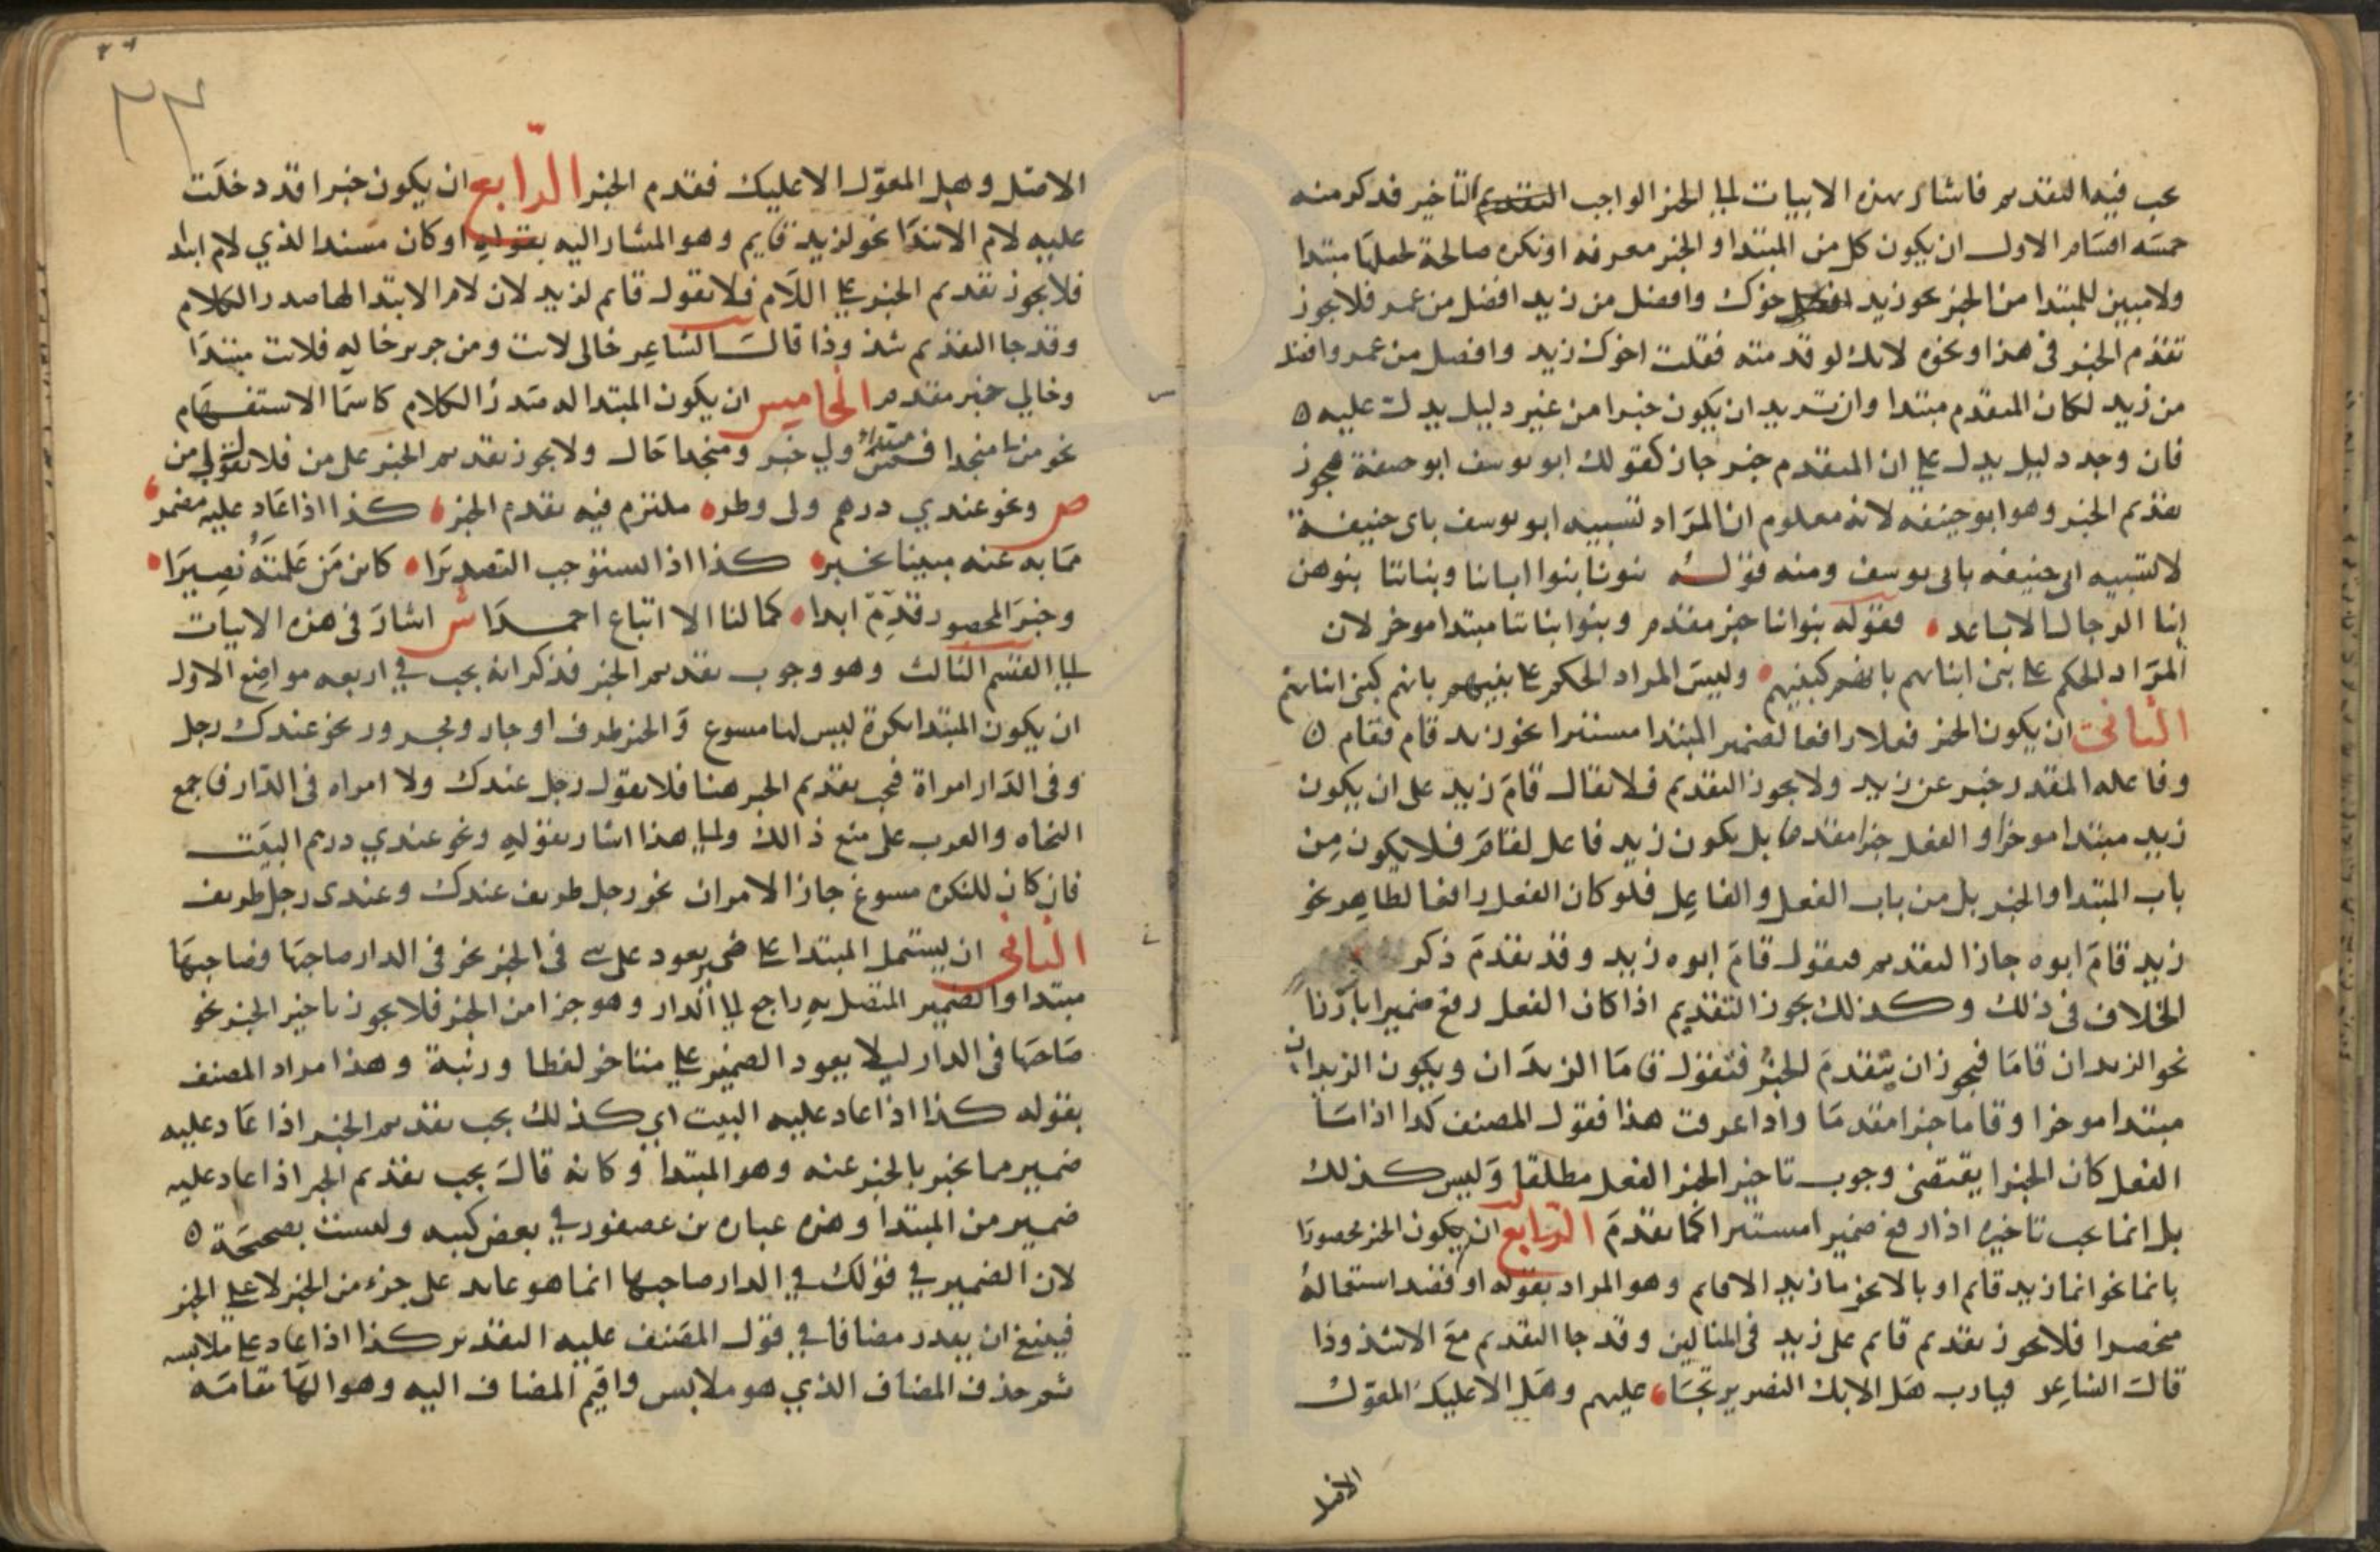 يجب فيه التقديم فاشار بهذه الابيات الى الخبر الواجب التقديم التاخير فذكر منه
خمسه اقسام الاول ان يكون كل من المبتدا والخبر معرفه او نكره صالحة لجعلها مبتدا
ولا مبين للمبتدا من الخبر نحو زيد اخوك وافضل من زيد افضل من عمر فلا يجوز
تقدم الخبر فى هذا ونحوه لانك لو قدمته فقلت اخوك زيد وافضل من عمر وافضل
من زيد لكان المتقدم مبتدا وان تريد ان يكون خبرا من غير دليل يدل عليه ه
فان وجد دليل يدل على ان المتقدم خبر جاز كقولك ابو يوسف ابو حنيفة فيجوز
تقديم الخبر وهو ابو حنيفه لانه معلوم ان المراد تشبيه ابو يوسف باى حنيفة
لا تشبيه ابى حنيفه بابى يوسف ومنه قوله بنونا بنوا ابنانا وبناتنا بنوهن
ابنا الرجال الاباعد فقوله بنونا خبر مقدم وبنوا ابناتنا مبتدا موخر لان
المراد الحكم على بنى ابنائهم بانهم كبنيهم وليس المراد الحكم على بنيهم بانهم كبنى ابنائهم
الثاني ان يكون الخبر فعلا رافعا لضمير المبتدا مستترا نحو زيد قام فقام ه
وفاعله المقدر خبر عن زيد ولا يجوز التقديم فلا يقال قام زيد على ان يكون
زيد مبتدا موخرا والفعل خبرا مقدما بل يكون زيد فاعل لقام فلا يكون من
باب المبتدا والخبر بل من باب الفعل والفاعل فلو كان الفعل رافعا لظاهر نحو
زيد قام ابوه جاز التقديم فتقول قام ابوه زيد وقد تقدم ذكر
الخلاف فى ذلك وكذلك يجوز التقديم اذا كان الفعل رفع ضميرا بارزا
نحو الزيدان قاما فيجوز ان يتقدم الخبر فتقول قاما الزيدان ويكون الزيدان
مبتدا موخرا وقاما خبرا مقدما واذا عرفت هذا فقول المصنف كذا اذا ما
الفعل كان الخبرا يقتضى وجوب تاخير الخبر الفعل مطلقا وليس كذلك
بل انما يجب تاخيره اذا رفع ضميرا مستترا كما تقدم الرابع ان يكون الخبر محصورا
بانما نحو انما زيد قائم او بالا نحو ما زيد الا قايم وهو المراد بقوله او قصد استعماله
منحصرا فلا يجوز تقديم قايم على زيد فى المثالين وقد جا التقديم مع الا شذوذا
قال الشاعر فيارب هل الا بك النصر يرتجا عليهم وهل الا عليك المعول
الامثل
٢٣
الامثل وهل المعول الا عليك فقدم الخبر الرابع ان يكون خبرا قد دخلت
عليه لام الابتدا نحو لزيد قايم وهو المشار اليه بقوله او كان مسندا لذي لام ابتدا
فلا يجوز تقديم الخبر على اللام فلا تقول قايم لزيد لان لام الابتدا لها صدر الكلام
وقد جا التقديم شذوذا قال الشاعر خالى لانت ومن جرير خاله فلانت مبتدا
وخالي خبر مقدم الخامس ان يكون المبتدا له صدر الكلام كاسما الاستفهام
نحو من لي منجدا فمن مبتدا ولي خبر ومنجدا حال ولا يجوز تقديم الخبر على من فلا تقول لي من
ص ونحو عندي درهم ولى وطر ملتزم فيه تقدم الخبر كذا اذا عاد عليه مضمر
مما به عنه مبينا يخبر كذا اذا يستوجب التصديرا كاين من علمته نصيرا
وخبر المحصور قدم ابدا كما لنا الا اتباع احمدا ش اشار فى هذه الابيات
الى القسم الثالث وهو وجوب تقديم الخبر فذكر انه يجب في اربعه مواضع الاول
ان يكون المبتدا نكرة ليس لها مسوغ والخبر ظرف او جار ومجرور نحو عندك رجل
وفى الدار امراة فيجب تقديم الخبر هنا فلا تقول رجل عندك ولا امراه فى الدار فاجمع
النحاه والعرب على منع ذالك والى هذا اشار بقوله ونحو عندي درهم البيت
فان كان للنكره مسوغ جاز الامران نحو رجل ظريف عندك وعندى رجل ظريف
الثانى ان يشتمل المبتدا على ضمير يعود على شي فى الخبر نحو فى الدار صاحبها فصاحبها
مبتدا والضمير المتصل به راجع الى الدار وهو جزا من الخبر فلا يجوز تاخير الخبر نحو
صاحبها فى الدار ليلا يعود الضمير على متاخر لفظا ورتبة وهذا مراد المصنف
بقوله كذا اذا عاد عليه البيت اي كذلك يجب تقديم الخبر اذا عاد عليه
ضمير مما يخبر بالخبر عنه وهو المبتدا وكانه قال يجب تقديم الخبر اذا عاد عليه
ضمير من المبتدا وهذه عباره بن عصفور في بعض كتبه وليست بصحيحة ه
لان الضمير في قولك في الدار صاحبها انما هو عايد على جزء من الخبر لا على الخبر
فينبغ ان يقدر مضافا في قول المصنف عليه التقدير كذا اذا عاد على ملابسه
ثم حذف المضاف الذي هو ملابس واقيم المضاف اليه وهو الها مقامه